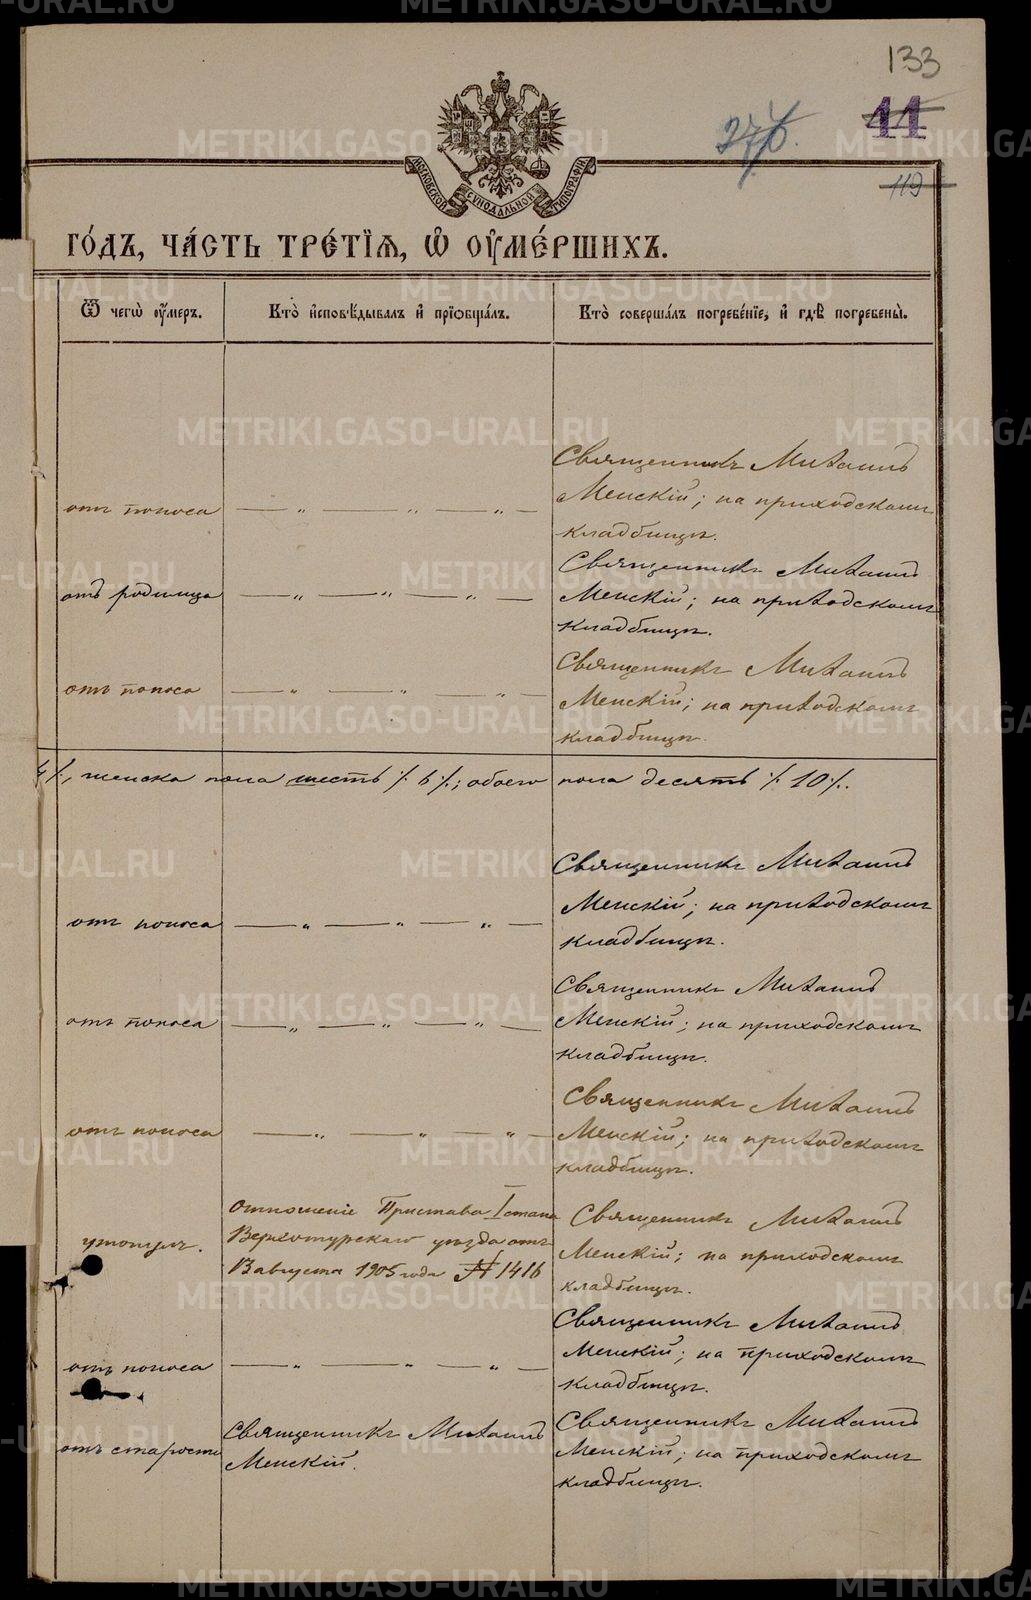 133
276.
11
119
МОСКОВСКОЙ СѴНОДАЛЬНОЙ ТИПОГРАФІИ
ГО́ДЪ, ЧА́СТЬ ТРЕ́ТІѦ, Ѡ҆ ОУ҆МЕ́РШИХЪ.
Ѿ чегѡ̀ оу҆́меръ.
Кто̀ и҆сповѣ́дывалъ и҆ прїѡбща́лъ.
Кто̀ соверша́лъ погребе́нїе, и҆ гдѣ̀ погребены̀.
Священникъ Михаилъ
отъ поноса — „ — „ — „ — Менскій; на приходскомъ
кладбищѣ.
Священникъ Михаилъ
отъ родимца — „ — „ — „ — Менскій; на приходскомъ
кладбищѣ.
Священникъ Михаилъ
отъ поноса — „ — „ — „ — Менскій; на приходскомъ
кладбищѣ.
4 ./., женска пола шесть ./. 6 ./.; обоего пола десять ./. 10 ./.
Священникъ Михаилъ
отъ поноса — „ — „ — „ — Менскій; на приходскомъ
кладбищѣ.
Священникъ Михаилъ
отъ поноса — „ — „ — „ — Менскій; на приходскомъ
кладбищѣ.
Священникъ Михаилъ
отъ поноса — „ — „ — „ — Менскій; на приходскомъ
кладбищѣ.
утонулъ.
Отношеніе Пристава I стана
Верхотурскаго уѣзда отъ
8 августа 1905 года № 1416
Священникъ Михаилъ
Менскій; на приходскомъ
кладбищѣ.
Священникъ Михаилъ
отъ поноса — „ — „ — „ — Менскій; на приходскомъ
кладбищѣ.
отъ старости
Священникъ Михаилъ
Менскій.
Священникъ Михаилъ
Менскій; на приходскомъ
кладбищѣ.
METRIKI.GASO-URAL.RU